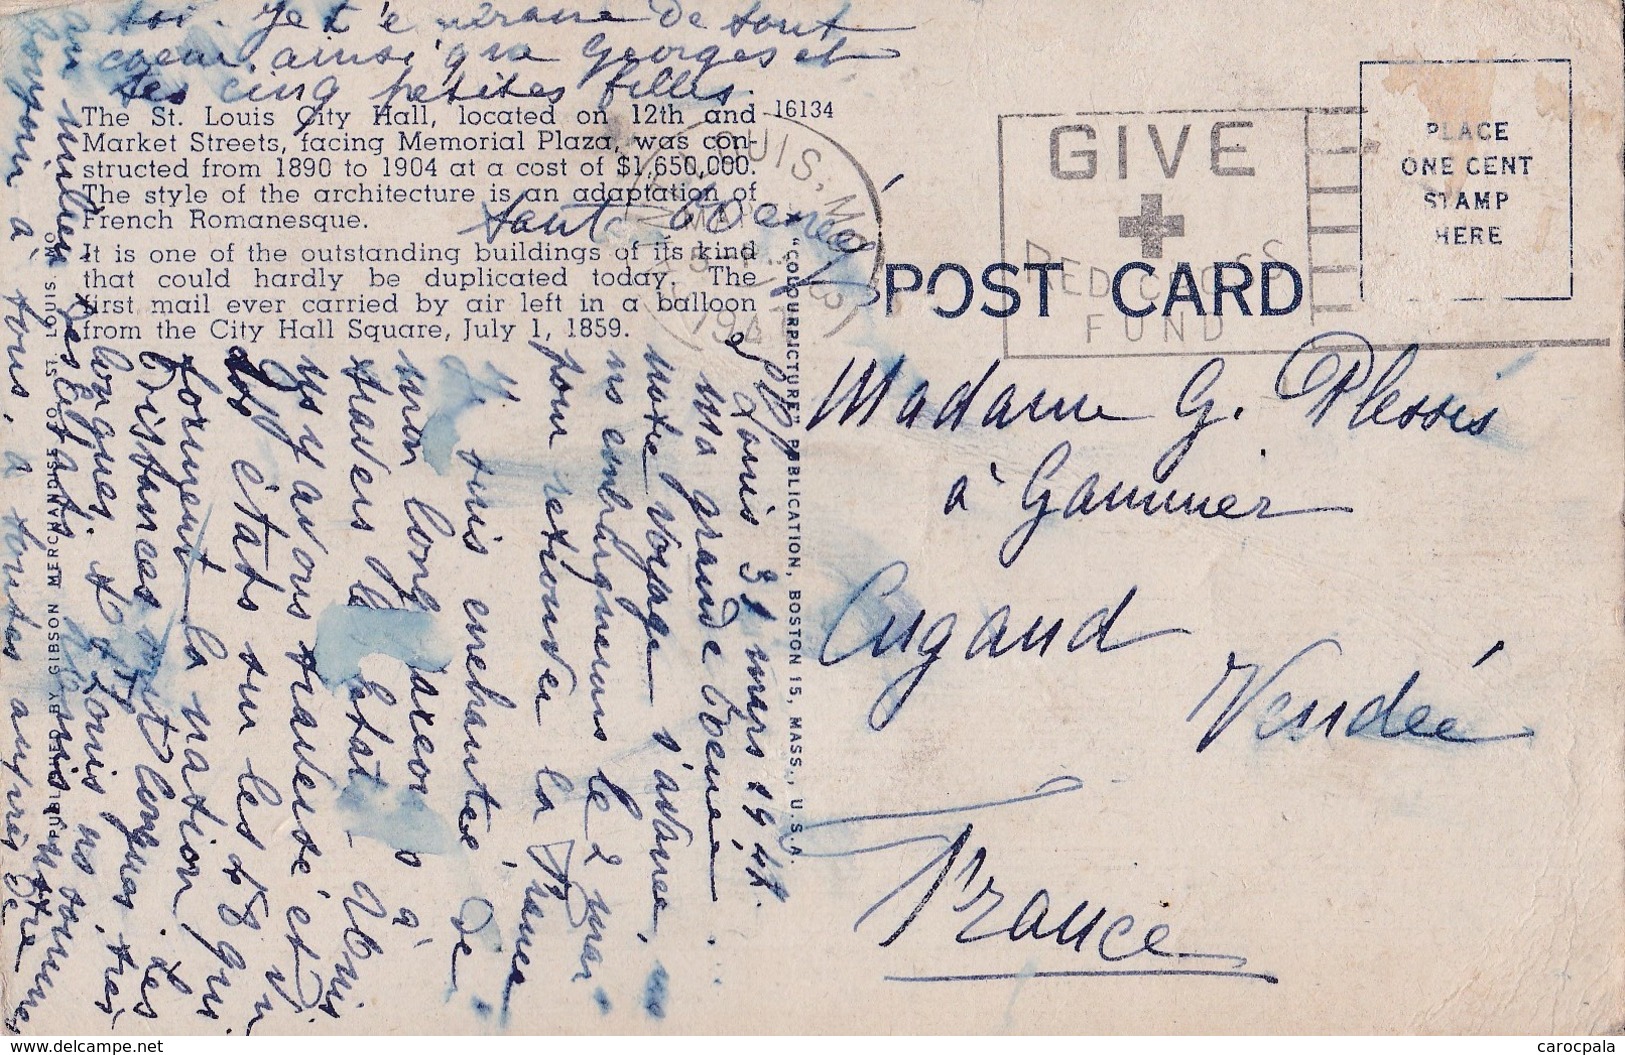 toi. Je t'e de tout
coeur ainsi que Georges et
tes cinq petites filles.
The St. Louis City Hall, located on 12th and
Market Streets, facing Memorial Plaza, was con-
structed from 1890 to 1904 at a cost of $1,650,000.
The style of the architecture is an adaptation of
French Romanesque.
It is one of the outstanding buildings of its kind
that could hardly be duplicated today. The
first mail ever carried by air left in a balloon
from the City Hall Square, July 1, 1859.
16134
GIVE
RED CROSS
FUND
PLACE
ONE CENT
STAMP
HERE
POST CARD
Madame G. Plessis
à Gammer
Cugand
Vendée
France
"COLOURPICTURE" PUBLICATION, BOSTON 15, MASS., U.S.A.
PUBLISHED BY GIBSON MERCHANDISE CO., ST. LOUIS, MO.
Louis 31 mars 1947.
Ma grande
notre voyage s'avance, ns
ns embarquerons le 2 mai
pour retrouver la France
suis enchantée de
mon long
travers les Etats Unis
Ns y avons traversé et vu
états sur les 48 qui
forment la nation. les
Distances sont longues, très
longues. St Louis ns sommes
au milieu des Etats Unis
bonjour à tous, à toutes auprès de
carocpala